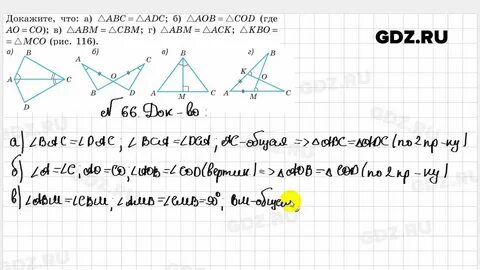 Докажите, что: а) △ABC = △ADC; б) △AOB = △COD (где
AO = CO); в) △ABM = △CBM; г) △ABM = △ACK, △KBO =
= △MCO (рис. 116).
GDZ.RU
а) б) в) г)
B B D B B
K
A C O O
D A C A M C A M C
N 66. Док-во:
а) ∠BAC = ∠DAC, ∠BCA = ∠DCA, AC-общая => △ABC = △ADC (по 2 пр-ку)
б) ∠A = ∠C, AO = CO, ∠AOB = ∠COD (вертик) => △AOB = △COD (по 2 пр-ку)
в) ∠ABM = ∠CBM; ∠AMB = ∠CMB = 90°, BM-общая,
GDZ.RU